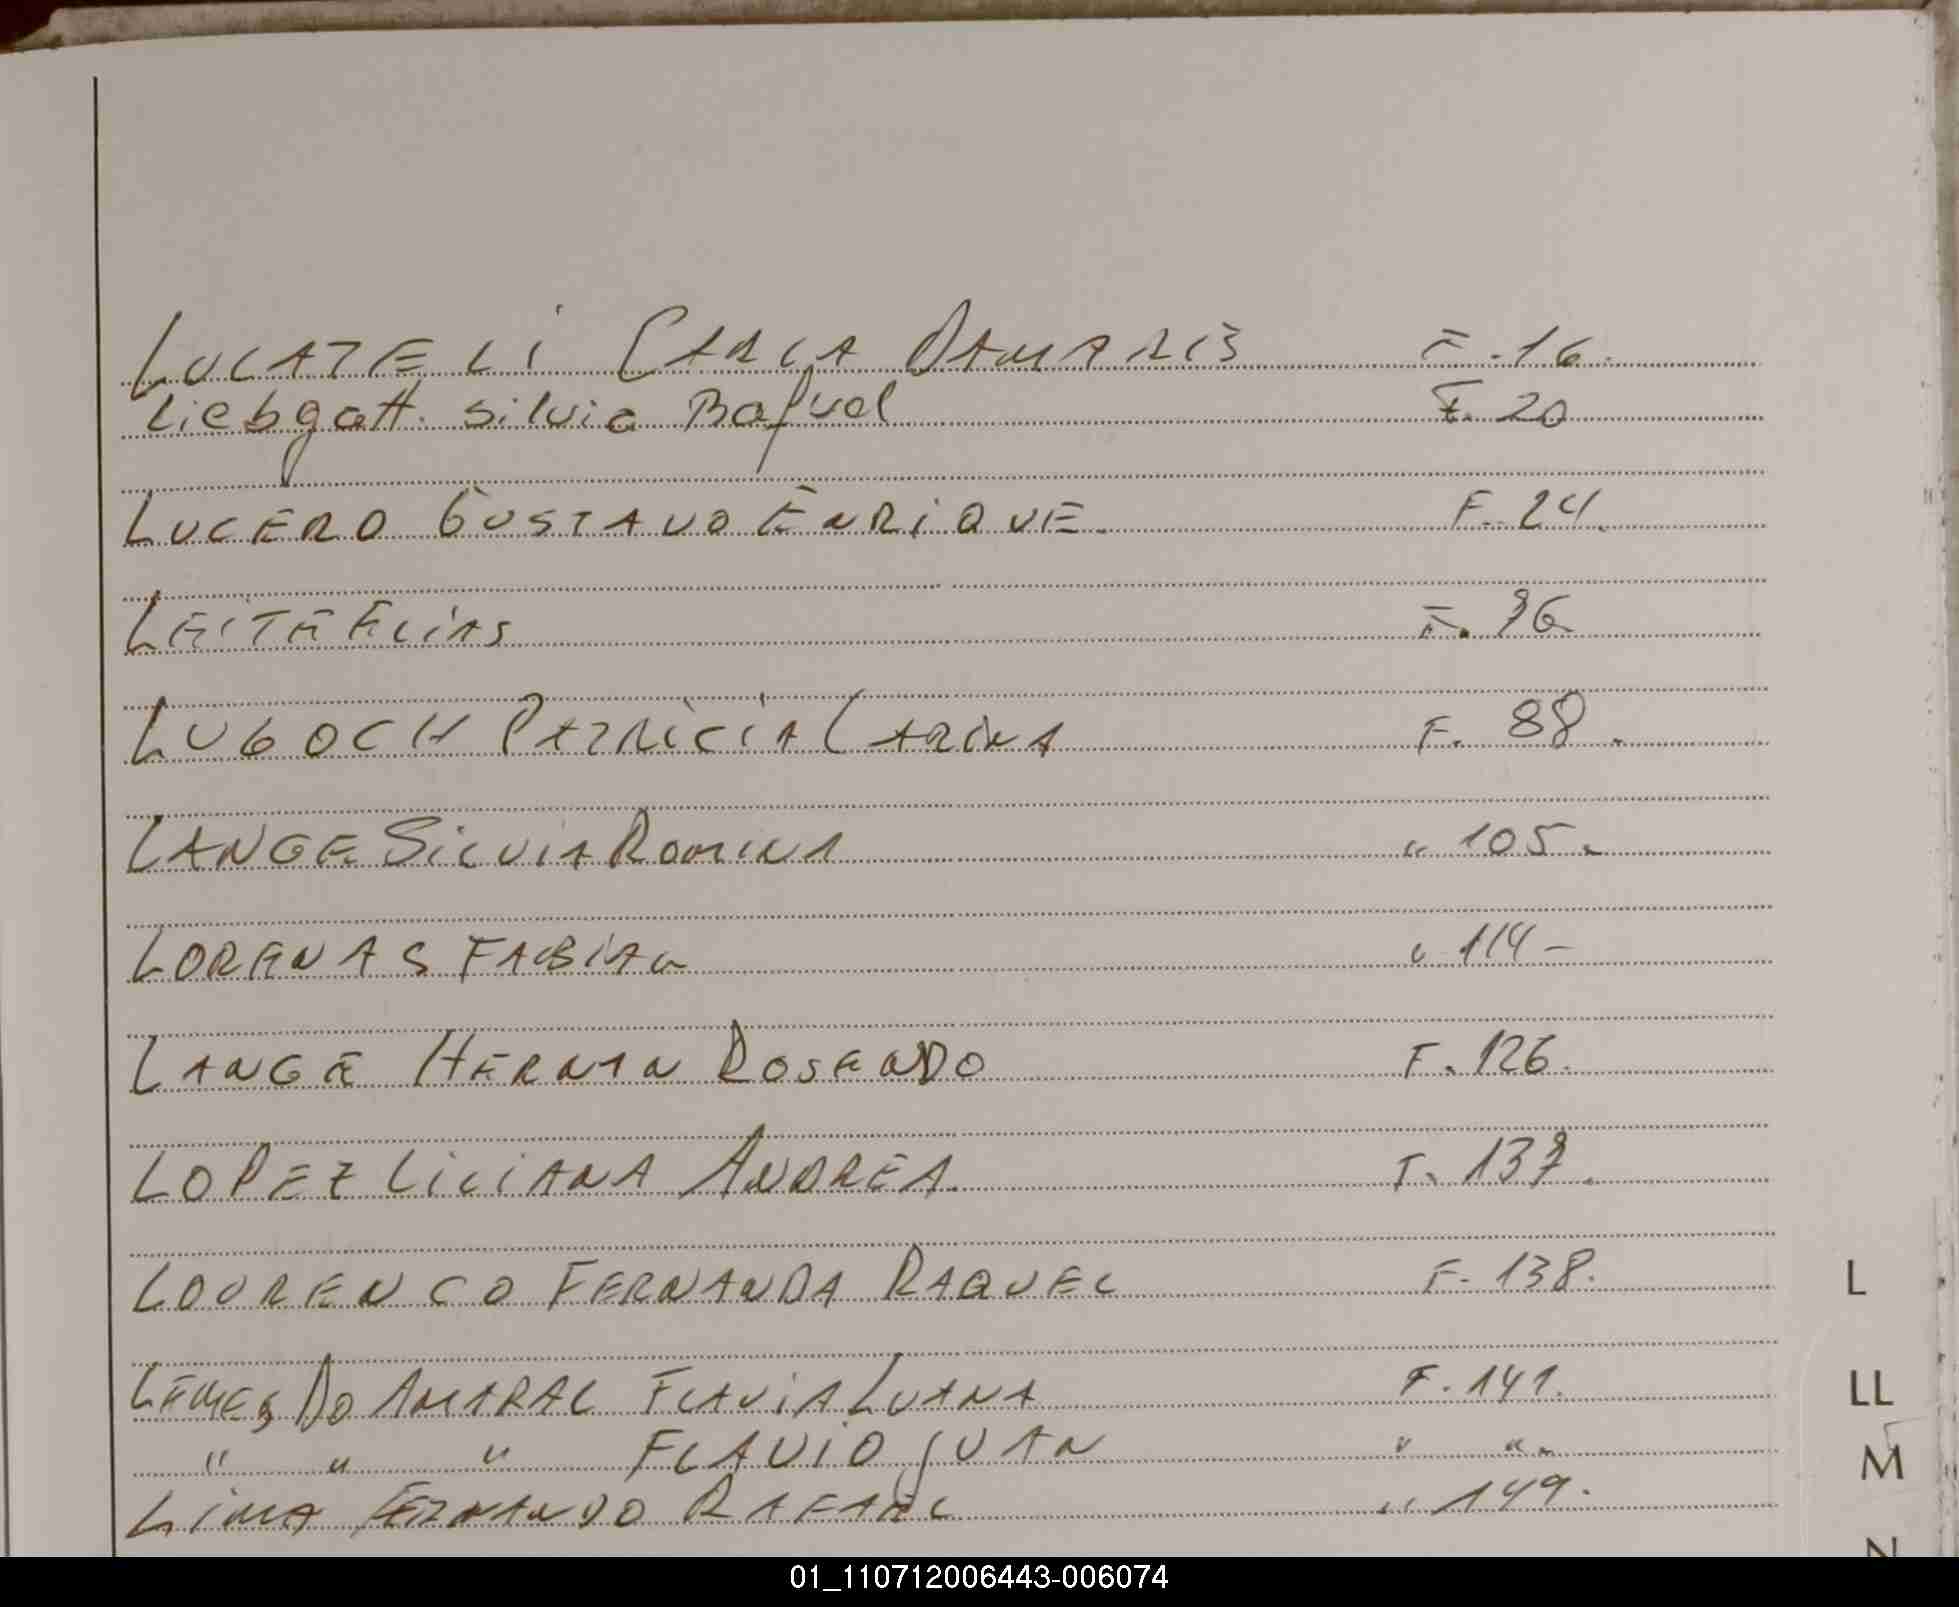 LUCATELLI CARLA DAMARIS F.16.
Liebgott. Silvia Raquel F. 20
LUCERO GUSTAVO ENRIQUE. F. 24.
LEITE ELIAS F. 36
LUGOCH PATRICIA CARINA F. 88.
LANGE SILVIA ROMINA " 105.
LORENAS FABIAN " 114-
LANGE HERNAN ROSENDO F. 126.
LOPEZ LILIANA ANDREA. F. 137.
LOURENCO FERNANDA RAQUEL F. 138.
LEMES DO AMARAL FLAVIA LUANA F. 141.
" " " FLAVIO JUAN " ".
LIMA FERNANDO RAFAEL " 149.
L
LL
M
N
01_110712006443-006074